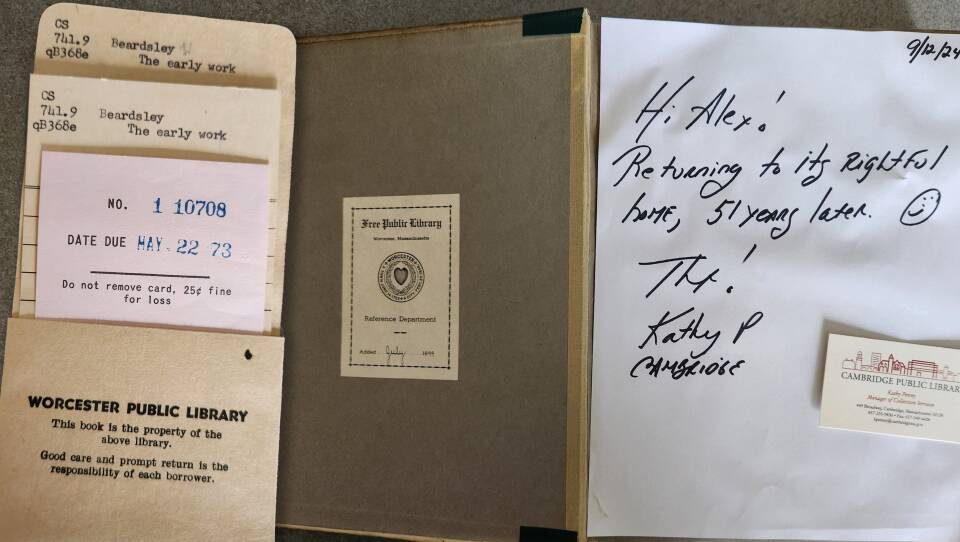 CS
741.9
qB368e
Beardsley
The early work
CS
741.9
qB368e
Beardsley
The early work
NO. 1 10708
DATE DUE MAY 22 73
Do not remove card, 25¢ fine
for loss
WORCESTER PUBLIC LIBRARY
This book is the property of the
above library.
Good care and prompt return is the
responsibility of each borrower.
Free Public Library
Worcester, Massachusetts
Reference Department
Added July 1899
9/12/24
Hi Alex!
Returning to its rightful
home, 51 years later.
Thx!
Kathy P
CAMBRIDGE
CAMBRIDGE PUBLIC LIBRARY
Kathy Penny
Manager of Collection Services
449 Broadway, Cambridge, Massachusetts 02138